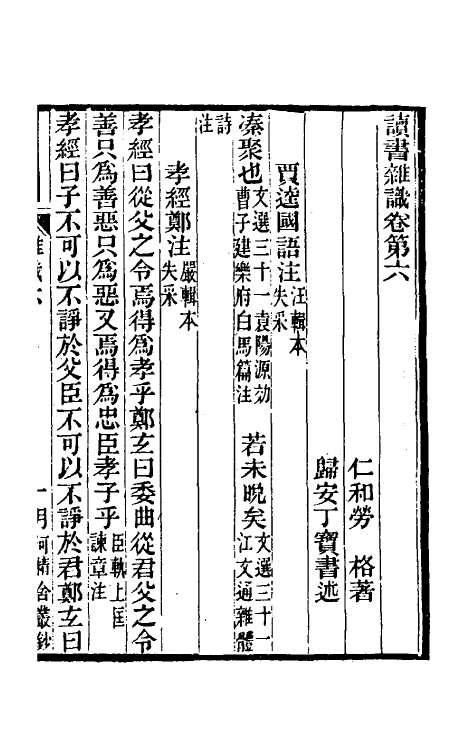 讀書雜識卷第六
仁和勞　格著
歸安丁寶書述
賈逵國語注汪輯本失采
湊聚也文選三十一袁陽源効曹子建樂府白馬篇注　若未晩矣文選三十一江文通雜體
詩注
孝經鄭注嚴輯本失采
孝經曰從父之令焉得爲孝乎鄭玄曰委曲從君父之令
善只爲善惡只爲惡又焉得爲忠臣孝子乎臣軌上匡諫章注
孝經曰子不可以不諍於父臣不可以不諍於君鄭玄曰
月河精舍叢鈔